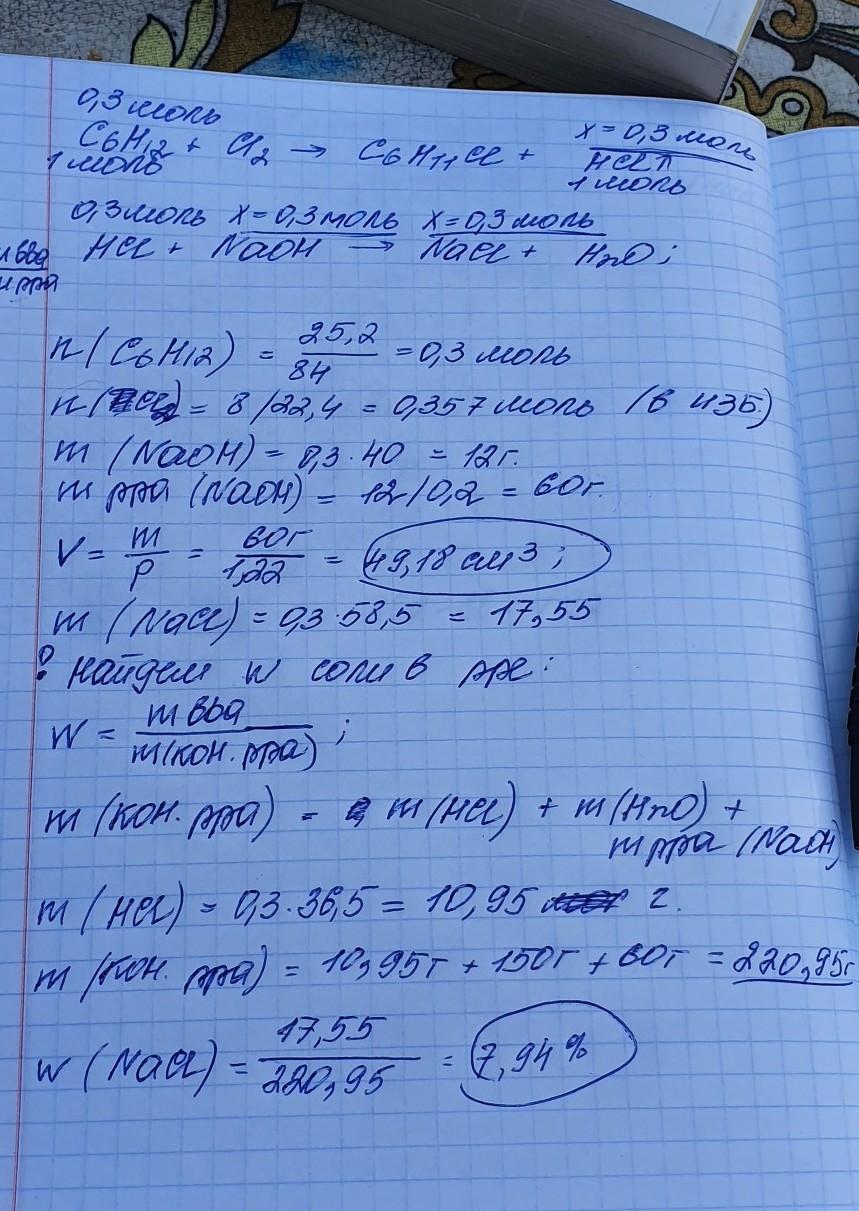 0,3 моль
C6H12 + Cl2 → C6H11Cl + HCl↑
1 моль
x = 0,3 моль
1 моль
0,3 моль x = 0,3 моль x = 0,3 моль
HCl + NaOH → NaCl + H2O;
m вва
m рра
n (C6H12) = 25,2 / 84 = 0,3 моль
n (Cl2) = 8 / 22,4 = 0,357 моль (в изб.)
m (NaOH) = 0,3 · 40 = 12 г.
m рра (NaOH) = 12 / 0,2 = 60 г.
V = m / ρ = 60 г / 1,22 = 49,18 см3;
m (NaCl) = 0,3 · 58,5 = 17,55
найдем w соли в рре:
W = m вва / m (кон. рра);
m (кон. рра) = m (HCl) + m (H2O) +
m рра (NaOH)
m (HCl) = 0,3 · 36,5 = 10,95 г.
m (кон. рра) = 10,95 г + 150 г + 60 г = 220,95 г
w (NaCl) = 17,55 / 220,95 = 7,94 %